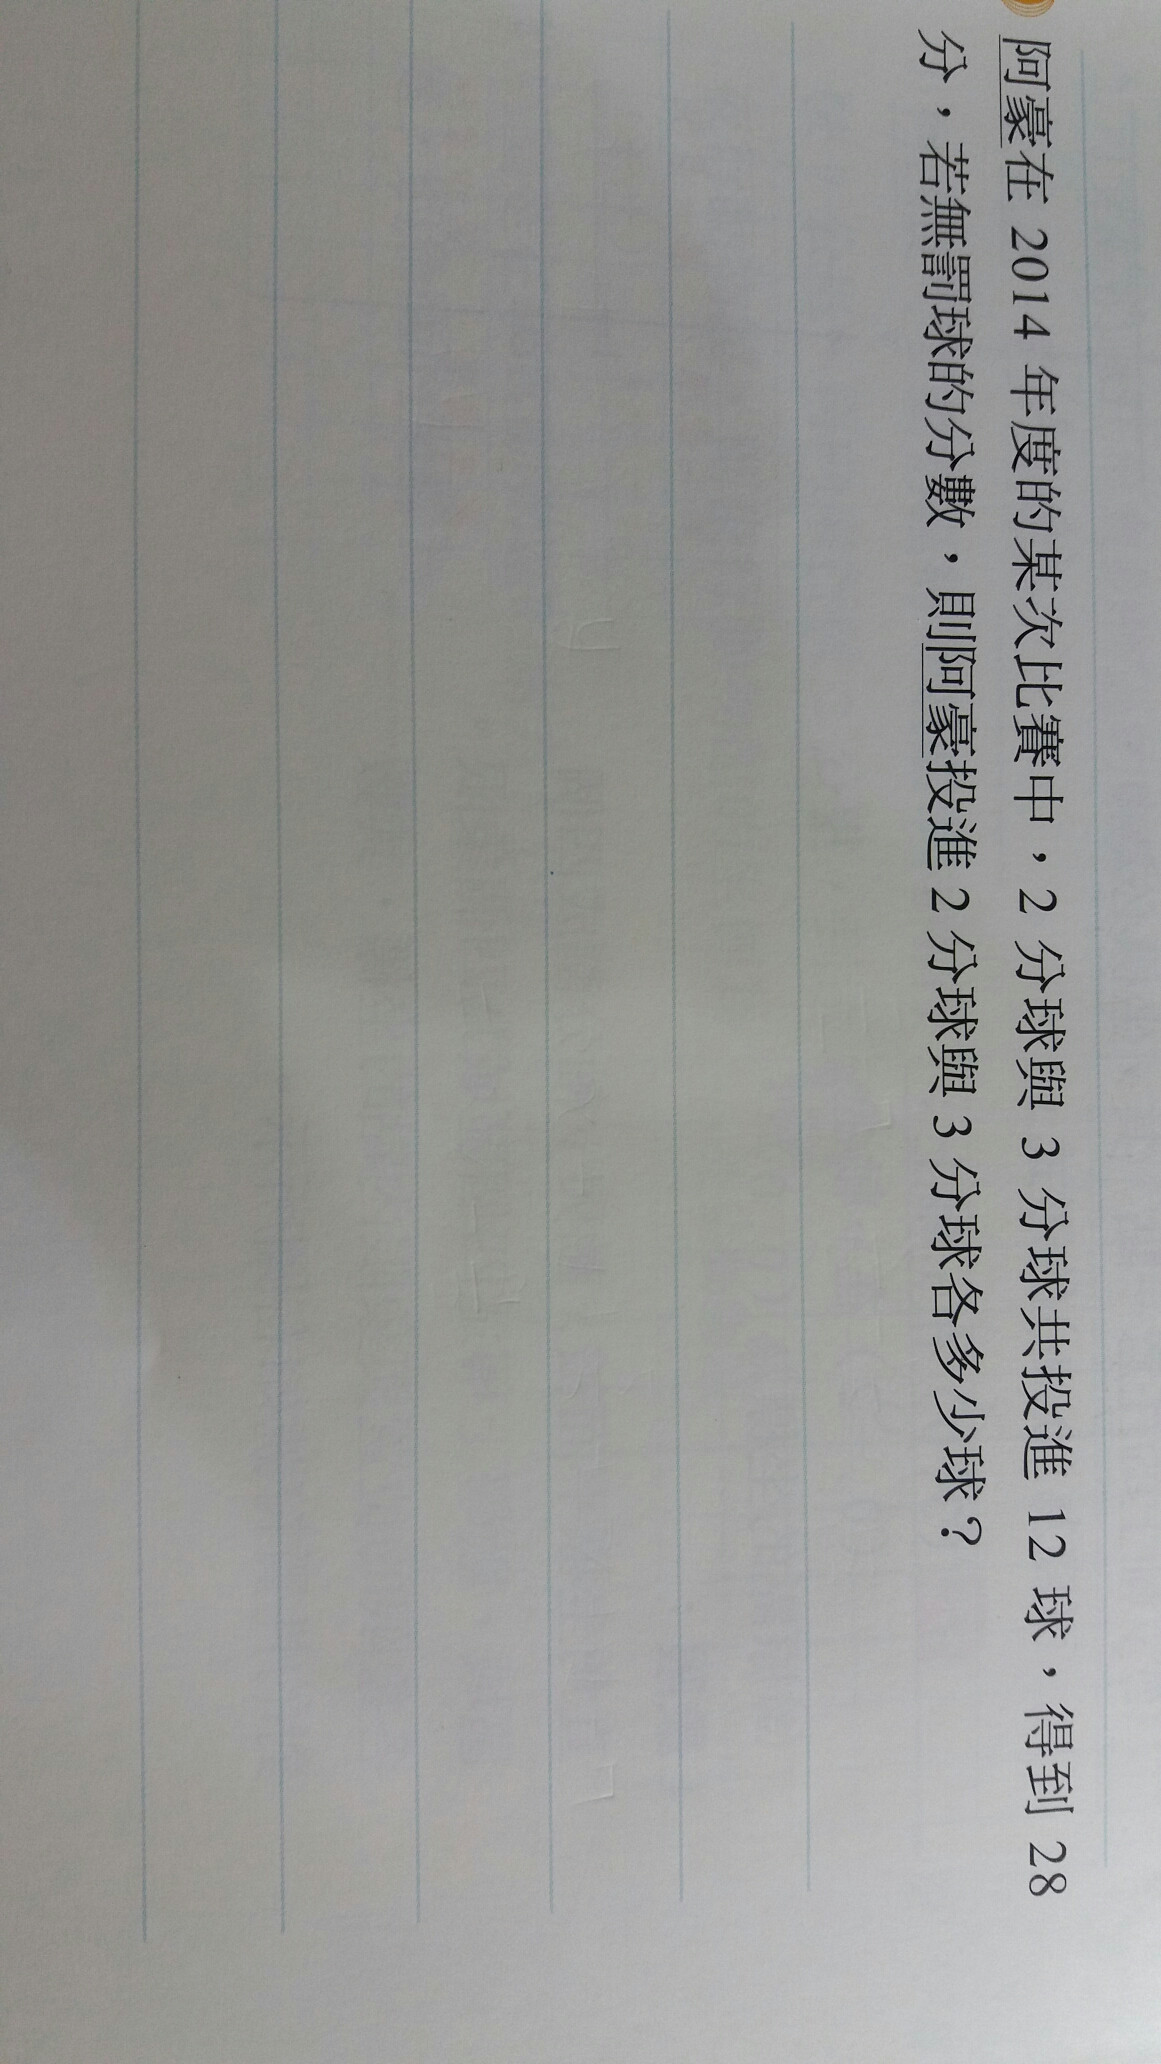 阿豪在 2014 年度的某次比賽中，2 分球與 3 分球共投進 12 球，得到 28
分，若無罰球的分數，則阿豪投進 2 分球與 3 分球各多少球？